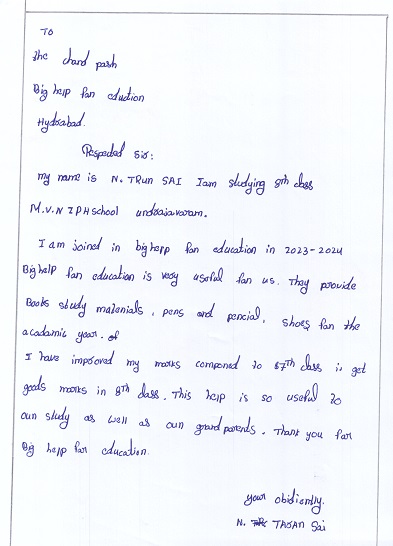 To
the chand pash
Big help fan eduction
Hyderabad.
Respeded sir:
my name is N. TRun SAI Iam studying 8th class
M.V.N ZPHschool undrajavaram.
I am joined in bighepp fan education in 2023-2024
Bighelp fan education is very useful fan us. They provide
Books study matenials, pens and pencial, shoes fan the
acadamic year. of
I have improved my marks compened to 7th class is get
goods marks in 8th class. This help is so useful to
oun study as well as oun grandparents. Thank you far
Big help far education.
your obidiently.
N. Sai